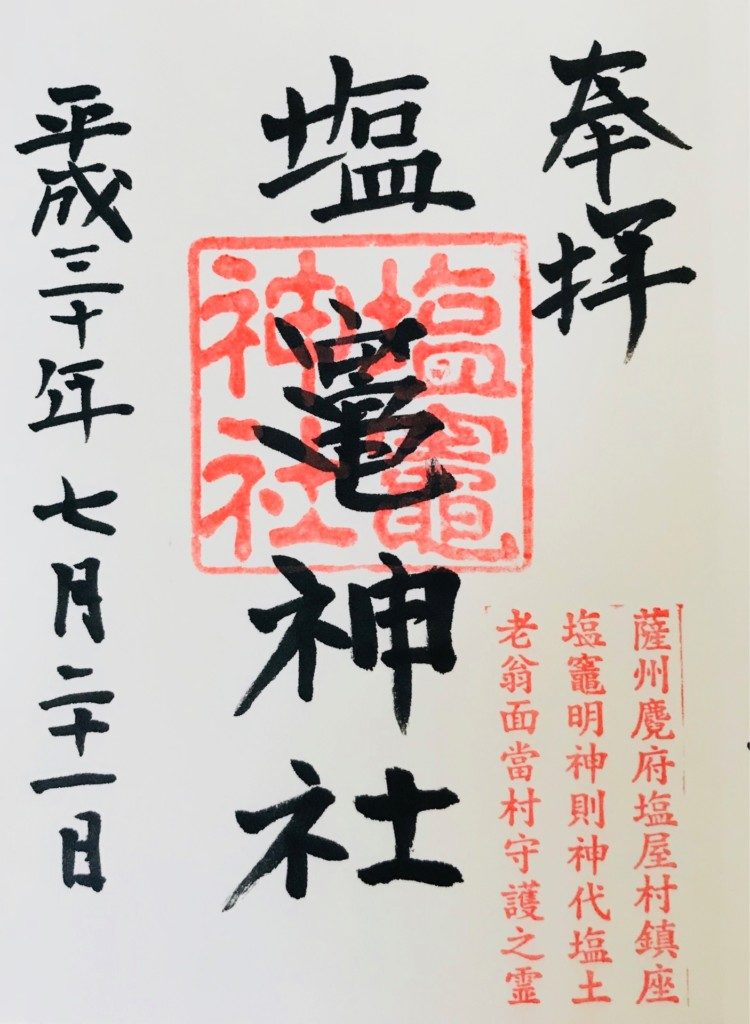 奉拝
塩竈神社
塩竈
神社
薩州麑府塩屋村鎮座
塩竈明神則神代塩土
老翁面當村守護之霊
平成三十年七月二十一日